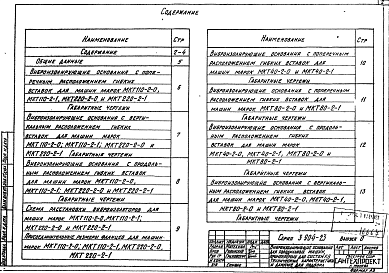 Содержание
Наименование
Стр
Содержание
2-4
Общие данные
5
Виброизолирующие основания с попе-
речным расположением гибких
вставок для машин марок МКТ110-2-0,
МКТ110-2-1, МКТ220-2-0 и МКТ220-2-1
Габаритные чертежи
6
Виброизолирующие основания с верти-
кальным расположением гибких
вставок для машин марок
МКТ110-2-0, МКТ110-2-1, МКТ220-2-0 и
МКТ220-2-1 Габаритные чертежи
7
Виброизолирующие основания с продоль-
ным расположением гибких вставок
для машин марок МКТ110-2-0,
МКТ110-2-1, МКТ220-2-0 и МКТ220-2-1
Габаритные чертежи
8
Схемы расстановки виброизоляторов для
машин марок МКТ110-2-0, МКТ110-2-1,
МКТ220-2-0 и МКТ220-2-1
Присоединительные размеры фланцев для машин
марок МКТ110-2-0, МКТ110-2-1, МКТ220-2-0,
МКТ220-2-1
9
Наименование
Стр
Виброизолирующие основания с поперечным
расположением гибких вставок для
машин марок МКТ40-2-0 и МКТ40-2-1
Габаритные чертежи
10
Виброизолирующие основания с поперечным
расположением гибких вставок для
машин марок МКТ80-2-0 и МКТ80-2-1
Габаритные чертежи
11
Виброизолирующие основания с продоль-
ным расположением гибких
вставок для машин марок
МКТ40-2-0, МКТ40-2-1, МКТ80-2-0 и
МКТ80-2-1
Габаритные чертежи
12
Виброизолирующие основания с вертикаль-
ным расположением гибких вставок для
машин марок МКТ40-2-0, МКТ40-2-1,
МКТ80-2-0 и МКТ80-2-1
Габаритные чертежи
13
Серия 3.904-23
Выпуск 0
Содержание
Сантехпроект